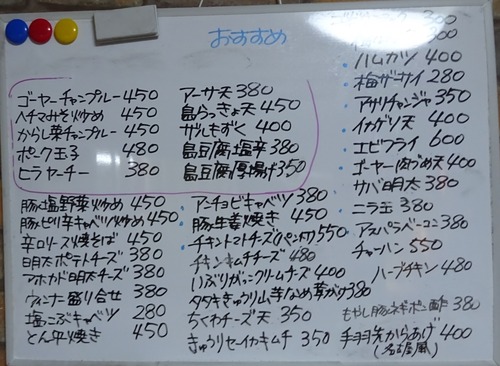 おすすめ
ゴーヤーチャンプルー 450
ヘチマみそ炒め 450
からし菜チャンプルー 450
ポーク玉子 480
ヒラヤーチー 380
アーサ天 380
島らっきょ天 450
ザルもずく 400
島豆腐塩辛 380
島豆腐厚揚げ 350
豚塩野菜炒め 450
豚ピリ辛キャベツ炒め 450
辛ロリース焼そば 450
明太ポテトチーズ 380
アボカド明太チーズ 380
ウィンナー盛り合せ 380
塩こぶキャベツ 280
とん平焼き 450
アーチョビキャベツ 380
豚生姜焼き 450
チキントマトチーズ 550
チキンキムチチーズ 480
いぶりがっこクリームチーズ 400
タタキきゅうり山芋なめ茸がけ 380
ちくわチーズ天 350
きゅうりセーイカキムチ 350
300
ハムカツ 400
梅ザーサイ 280
アサリチャンジャ 350
イカゲソ天 400
エビフライ 600
ゴーヤー肉づめ天 400
サバ明太 380
ニラ玉 380
アスパラベーコン 380
チャーハン 550
ハーブチキン 480
もやし豚ネギポン酢 380
手羽先からあげ 400
(名古屋風)